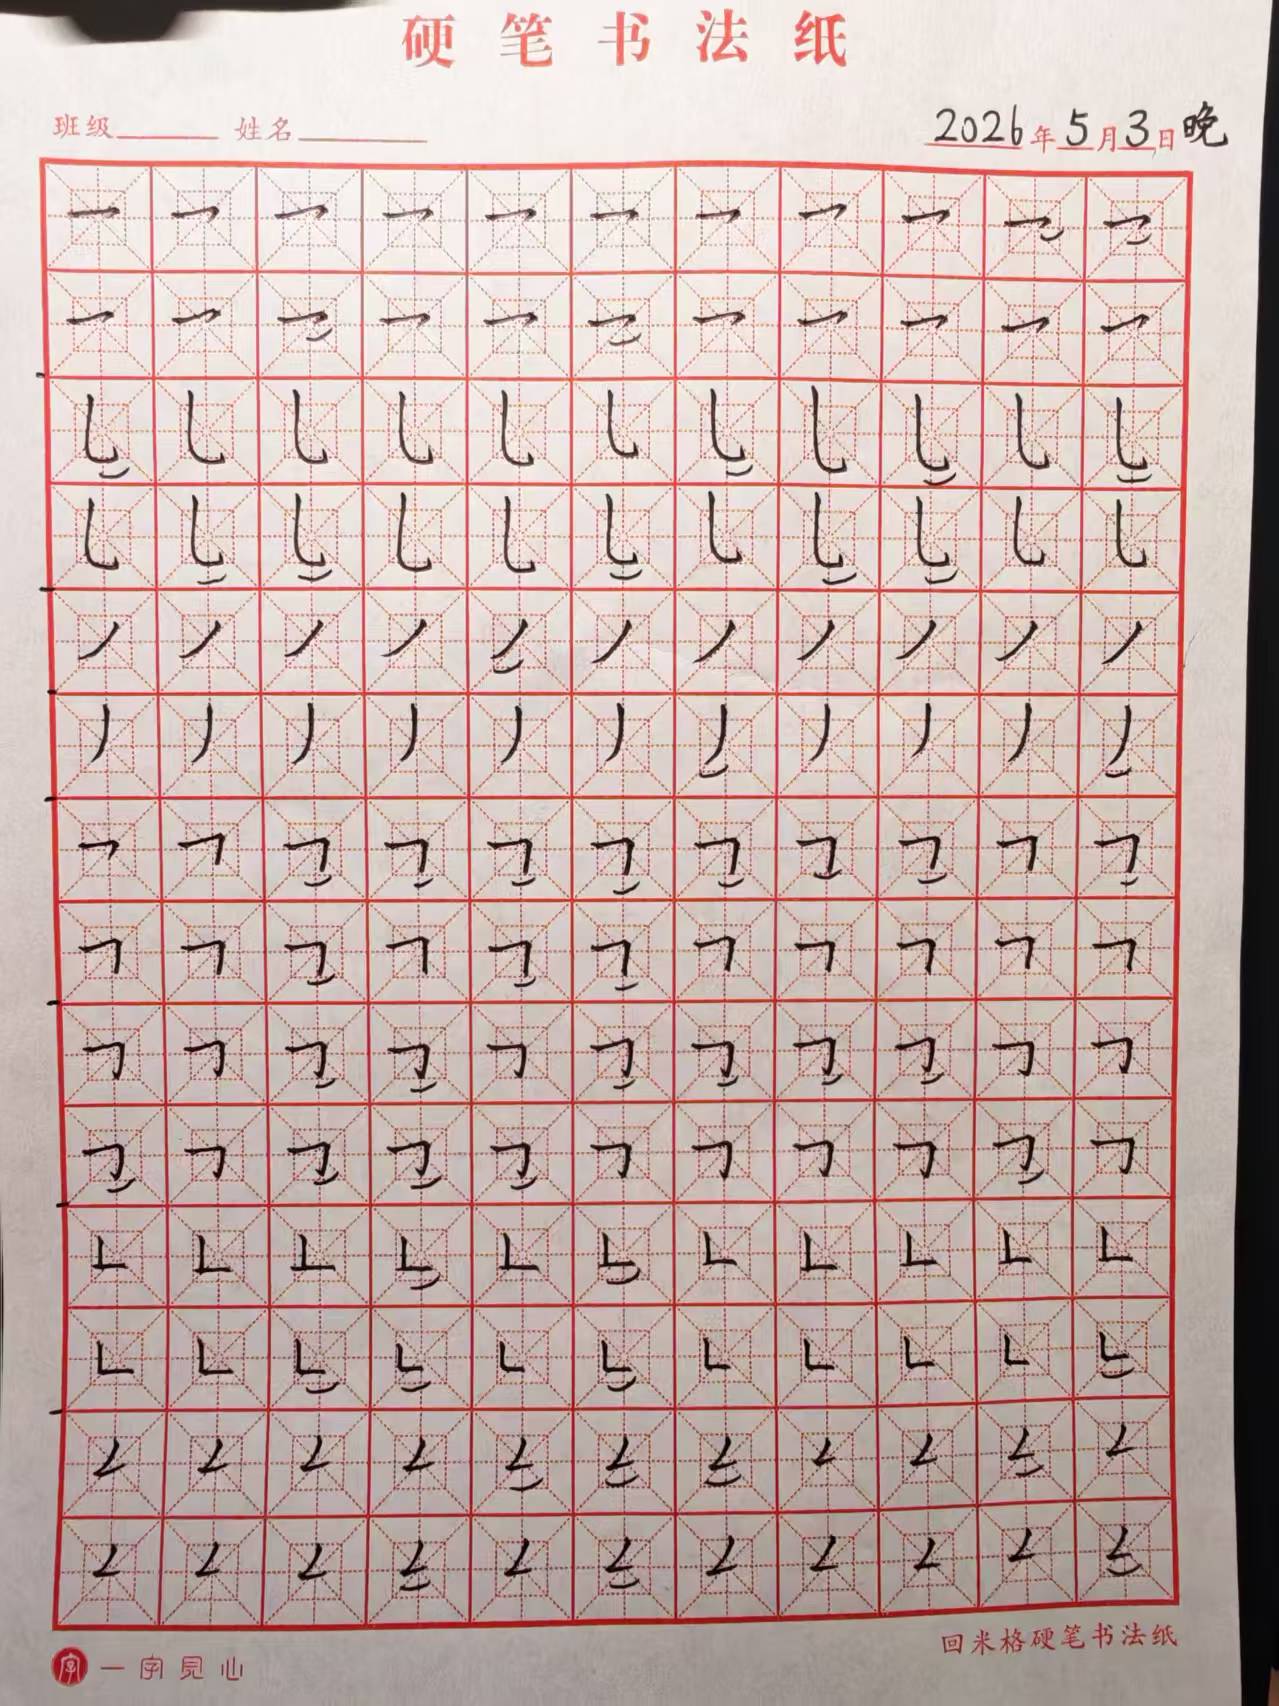 硬笔书法纸
班级 姓名 2026年5月3日晚
回米格硬笔书法纸
字 一字見心